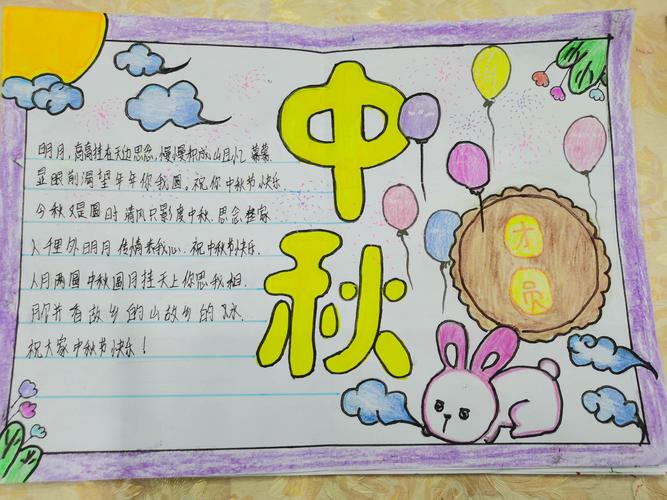 明月,高高挂在天边思念,慢慢积成山回忆 幕幕
显眼前渴望年年你我圆,祝你中秋节快乐
今秋又是圆时清风只影度中秋.思念挂家
人千里外明月传情表我心.祝中秋节快乐.
人月两圆中秋圆月挂天上你思我相.
月并看故乡的山故乡的水.
祝大家中秋节快乐!
中
秋
员